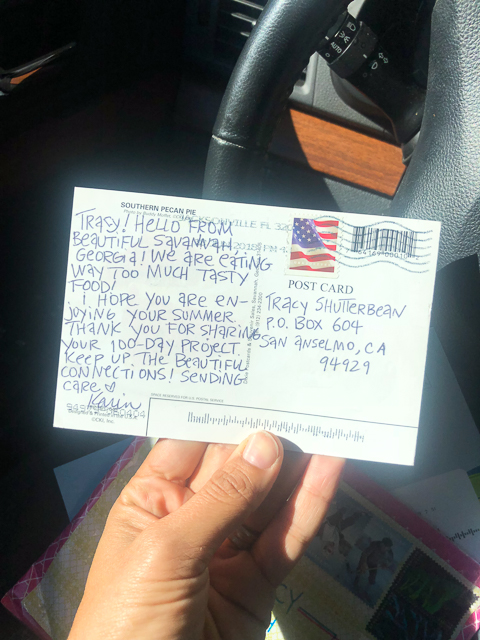 SOUTHERN PECAN PIE
JACKSONVILLE FL 320
2018 PM 4
TRACY! HELLO FROM
BEAUTIFUL SAVANNAH
GEORGIA! WE ARE EATING
WAY TOO MUCH TASTY
FOOD!
I HOPE YOU ARE EN-
JOYING YOUR SUMMER
THANK YOU FOR SHARING
YOUR 100-DAY PROJECT.
KEEP UP THE BEAUTIFUL
CONNECTIONS! SENDING
CARE ♡
Karin
POST CARD
TRACY SHUTTERBEAN
P.O. BOX 604
SAN ANSELMO, CA
94929
AUTO